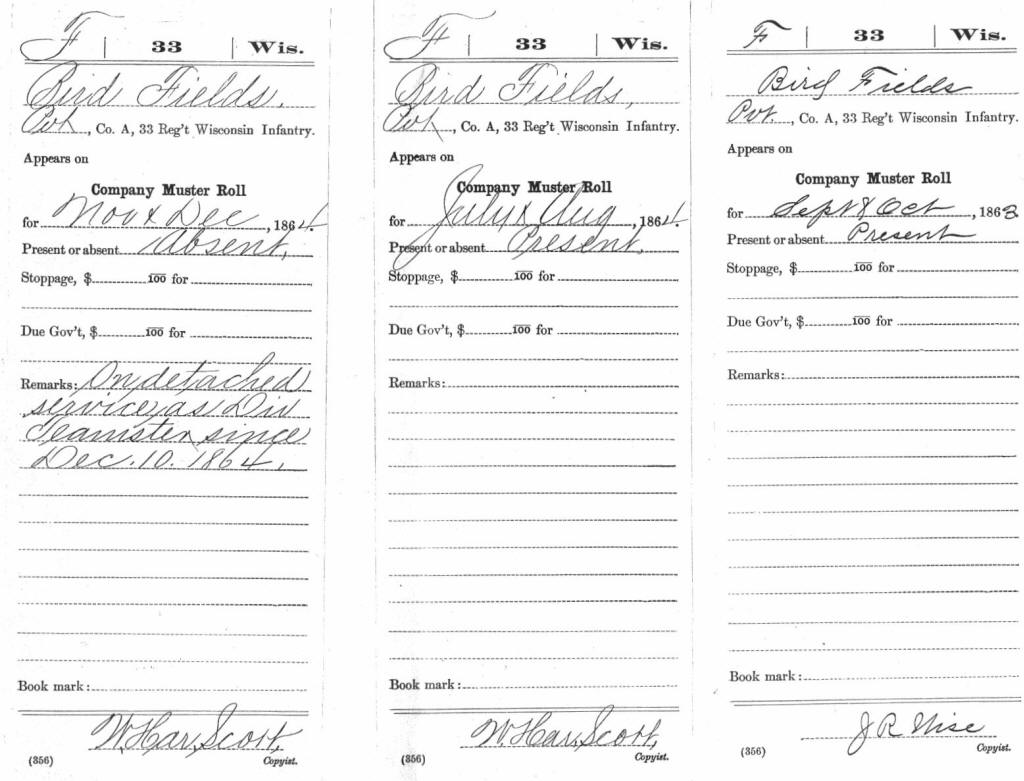 F | 33 | Wis.
Bird Fields.
Pvt., Co. A, 33 Reg't Wisconsin Infantry.
Appears on
Company Muster Roll
for Nov & Dec, 1864.
Present or absent Absent,
Stoppage, $ 100 for
Due Gov't, $ 100 for
Remarks: On detached
service as Div
Teamster since
Dec. 10. 1864.
Book mark:
W. Har. Scott,
(356) Copyist.
F | 33 | Wis.
Bird Fields,
Pvt, Co. A, 33 Reg't Wisconsin Infantry.
Appears on
Company Muster Roll
for July & Aug, 1864.
Present or absent Present.
Stoppage, $ 100 for
Due Gov't, $ 100 for
Remarks:
Book mark:
W. Har. Scott,
(356) Copyist.
F | 33 | Wis.
Bird Fields
Pvt., Co. A, 33 Reg't Wisconsin Infantry.
Appears on
Company Muster Roll
for Sept & Oct, 1863.
Present or absent Present
Stoppage, $ 100 for
Due Gov't, $ 100 for
Remarks:
Book mark:
J R Wise
(356) Copyist.